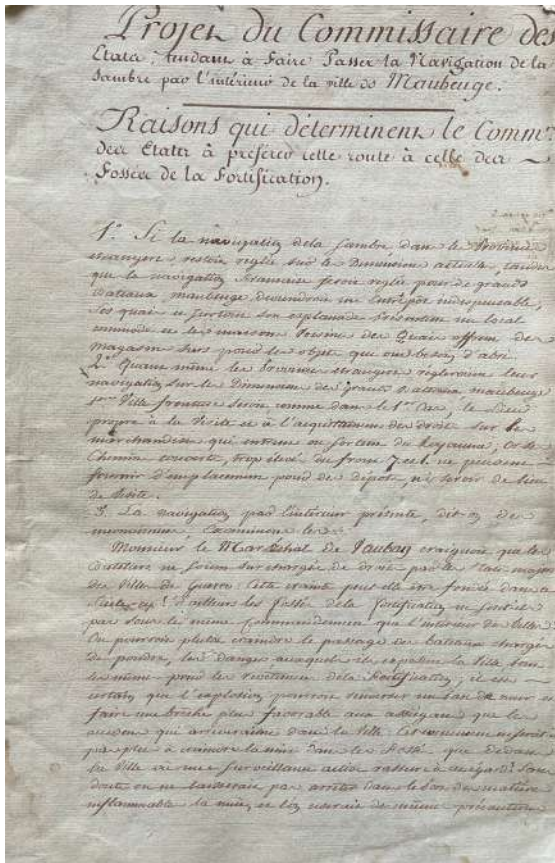 Projet du Commissaire des
Etats, tendant à faire Passer la Navigation de la
Sambre par l'intérieur de la ville de Maubeuge.
Raisons qui déterminent le Comm.re
des Etats à préférer cette route à celle des
Fossés de la Fortification.
1.° Si la navigation de la Sambre dans les Provinces
étrangères restoit réglée sur les Dimensions actuelles, tandis
que la navigation françoise seroit réglée pour de grands
Bateaux, maubeuge deviendroit un Entrepôt indispensable,
Ses quais et surtout son esplanade présentent un local
commode et les maisons voisines des Quais offrent des
magasins surs pour les objets qui ont besoin d'abri.
2.° Quand même les Provinces étrangères régleroient leur
navigation sur les Dimensions des grands Bateaux maubeuge
Ville frontière seroit comme dans le 1.er Cas, le Lieu
propre à la Visite et à l'acquittement des droits sur les
marchandises qui entrent ou sortent du Royaume, Or les
Chemins couverts, trop élevés du front 7 et 1. ne peuvent
fournir d'emplacement pour des Dépots, ni servir de lieu
de visite.
3.° La navigation par l'intérieur présente, dit-on des
inconvéniens, Examinons les.
Monsieur le Maréchal de Vauban craignoit que les
Batteliers ne fussent surchargés de droits par les Etats-majors
des Villes de Guerre. Cette crainte peut elle être fondée dans ce
Siècle-ci! d'ailleurs les fossés de la fortification ne sont-ils
pas sous le même Commandement que l'intérieur des Villes?
On pourroit plutôt craindre le passage des bateaux chargés
de poudre, les dangers auxquels ils exposent la Ville sont
les mêmes pour les revêtemens de la Fortification; il est
certain que l'explosion pourroit renverser un pan de mur et
faire une brèche plus favorable aux assiégeans que les
qui arriveroient dans la Ville. Cet
pas plus à craindre la nuit dans les Fossés que dedans
la Ville où une surveillance active rassure à cet égard! Sans
doute on ne laisseroit pas arriver dans le
inflammable la nuit, et l'on useroit de mêmes précautions